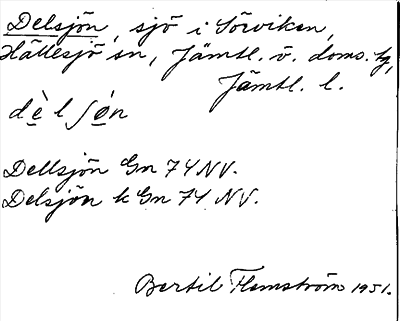 Delsjön, sjö i Sörviken,
Hällesjö sn, Jämtl. ö. doms. tg,
Jämtl. l.
dè l ʃø̀n
Dellsjön Gn 74 NV.
Delsjön k Gn 74 NV.
Bertil Flemström 1951.